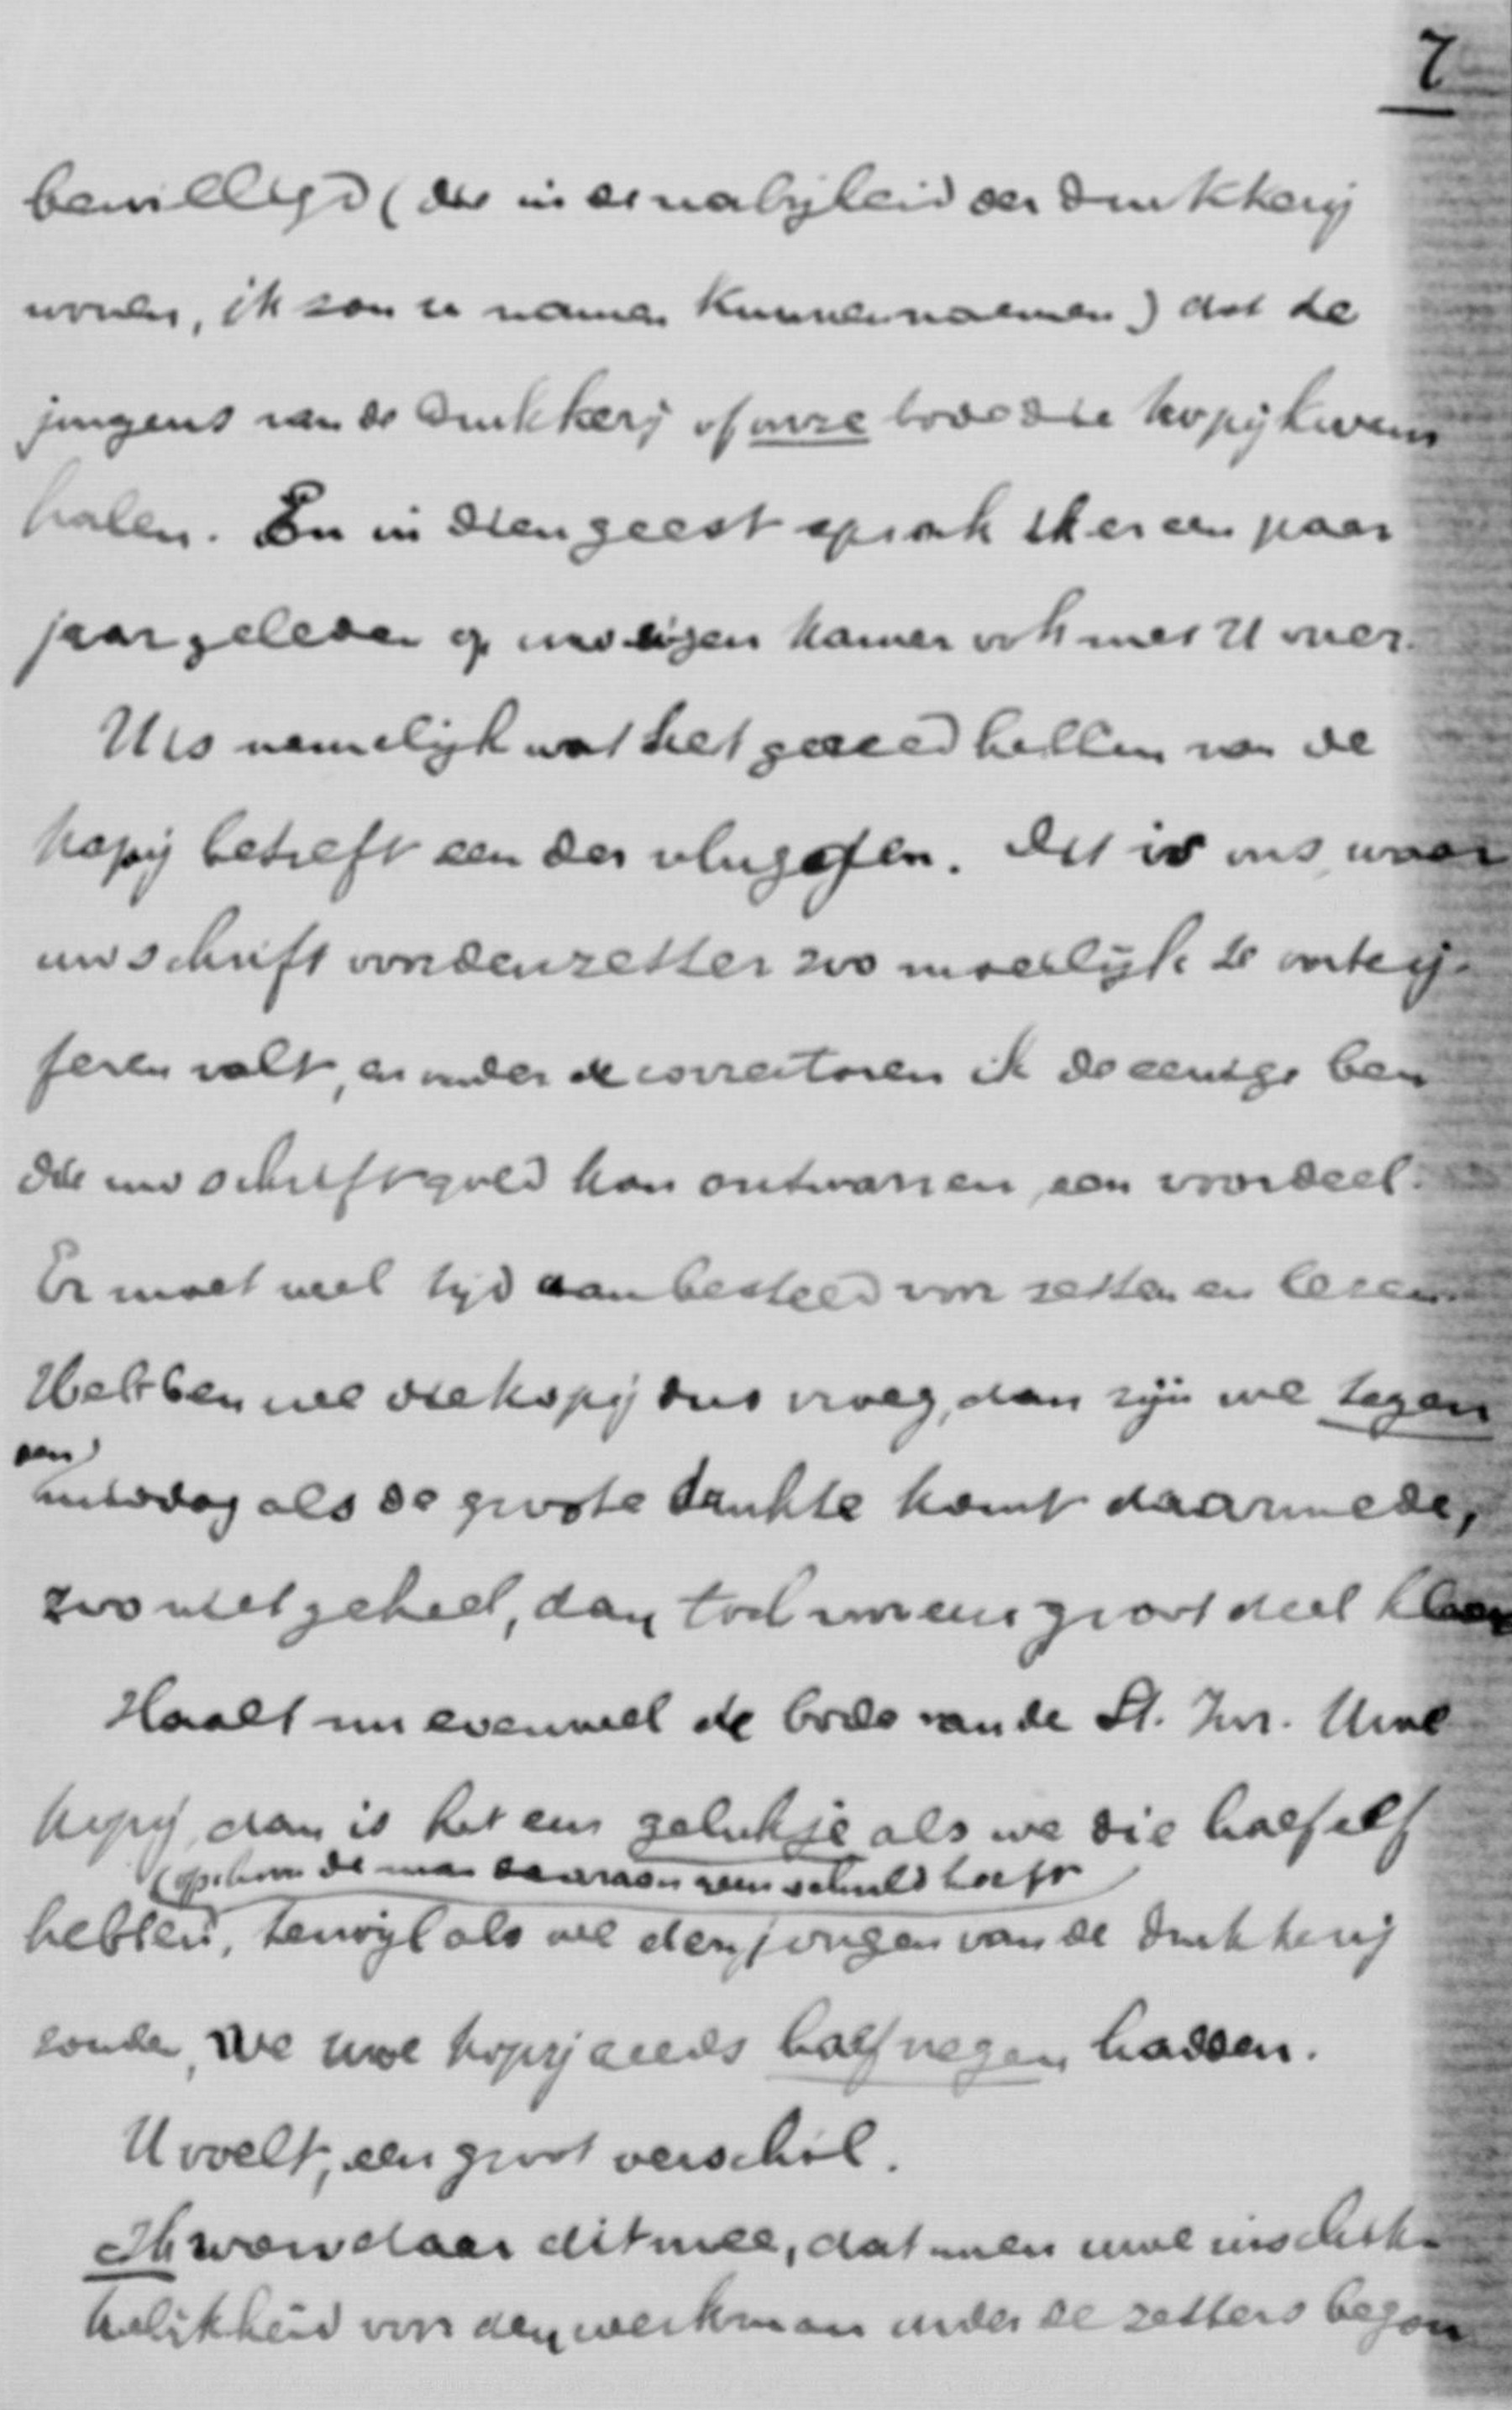 7
bewilligd (die in de nabijheid der drukkerij
wonen, ik zou u namen kunnen noemen) dat de
jongens van de drukkerij of onze bode die kopij kwam
halen. En in dien geest sprak ik er een paar
jaar geleden op uw eigen kamer ook met U over.
U is namelijk wat het gereed hebben van de
kopij betreft een der vlugsten. Dit is ons, waar
uw schrift voor den zetter zoo moeilijk te ontcij-
feren valt, en onder de correctoren ik de eenige ben
die uw schrift goed kan ontwarren, een voordeel.
Er moet veel tijd aan besteed voor zetten en lezen.
Hebben we die kopij dus vroeg, dan zijn we tegen
den
middag als de groote drukte komt daarmede,
zoo niet geheel, dan toch voor een groot deel klaar
Haalt nu evenwel de bode van de St. Uwe
kopij, dan is het een gelukje als we die half elf
(ofschoon de man daaraan geen schuld heeft)
hebben, terwijl als we den jongen van de drukkerij
zonden, we uwe kopij reeds half negen hadden.
U voelt, een groot verschil.
Ik won daar dit mee, dat men uwe inschik-
kelijkheid voor den werkman onder de zetters begon